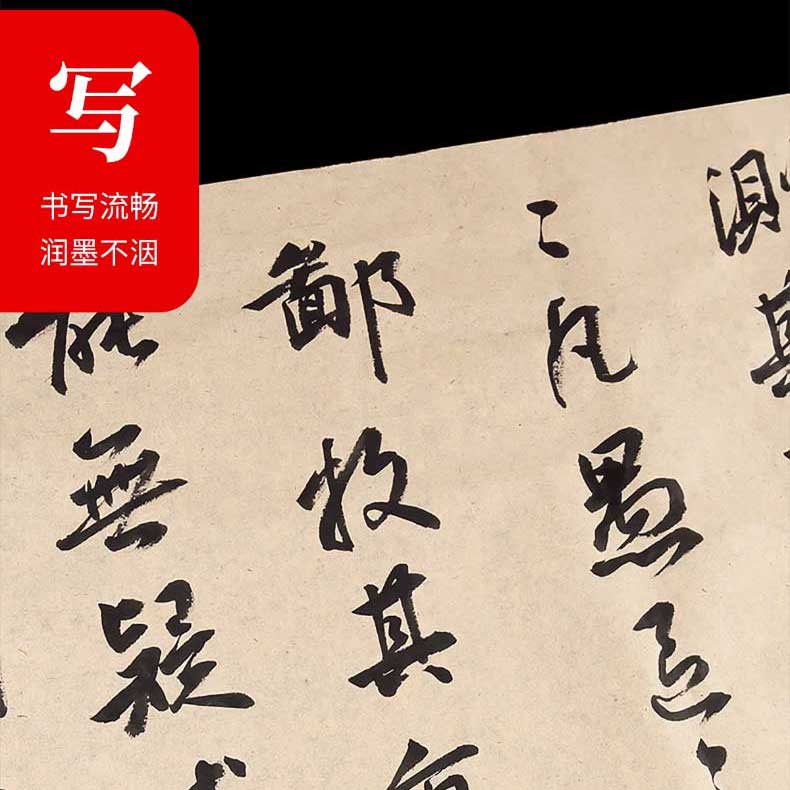 写
书写流畅
润墨不洇
測其
凡愚
鄙牧其
能無疑